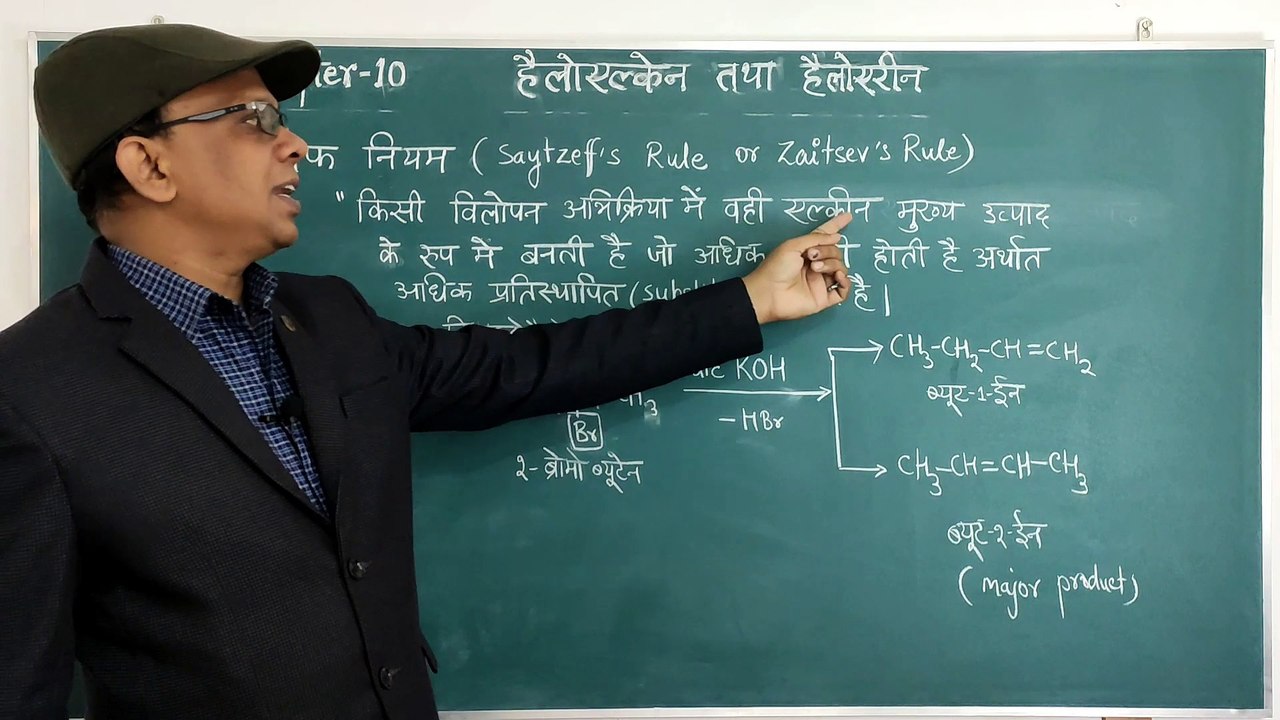 ter-10 हैलोएल्केन तथा हैलोएरीन
फ नियम ( Saytzeff's Rule or Zaitsev's Rule)
" किसी विलोपन अभिक्रिया में वही एल्कीन मुख्य उत्पाद
के रुप मे बनती है जो अधिक होती है अर्थात
अधिक प्रतिस्थापित ( है।
KOH
CH₃-CH₂-CH=CH₂
-HBr
ब्यूट-1-ईन
Br
२- ब्रोमो ब्यूटेन
CH₃-CH=CH-CH₃
ब्यूट-२-ईन
( major product)